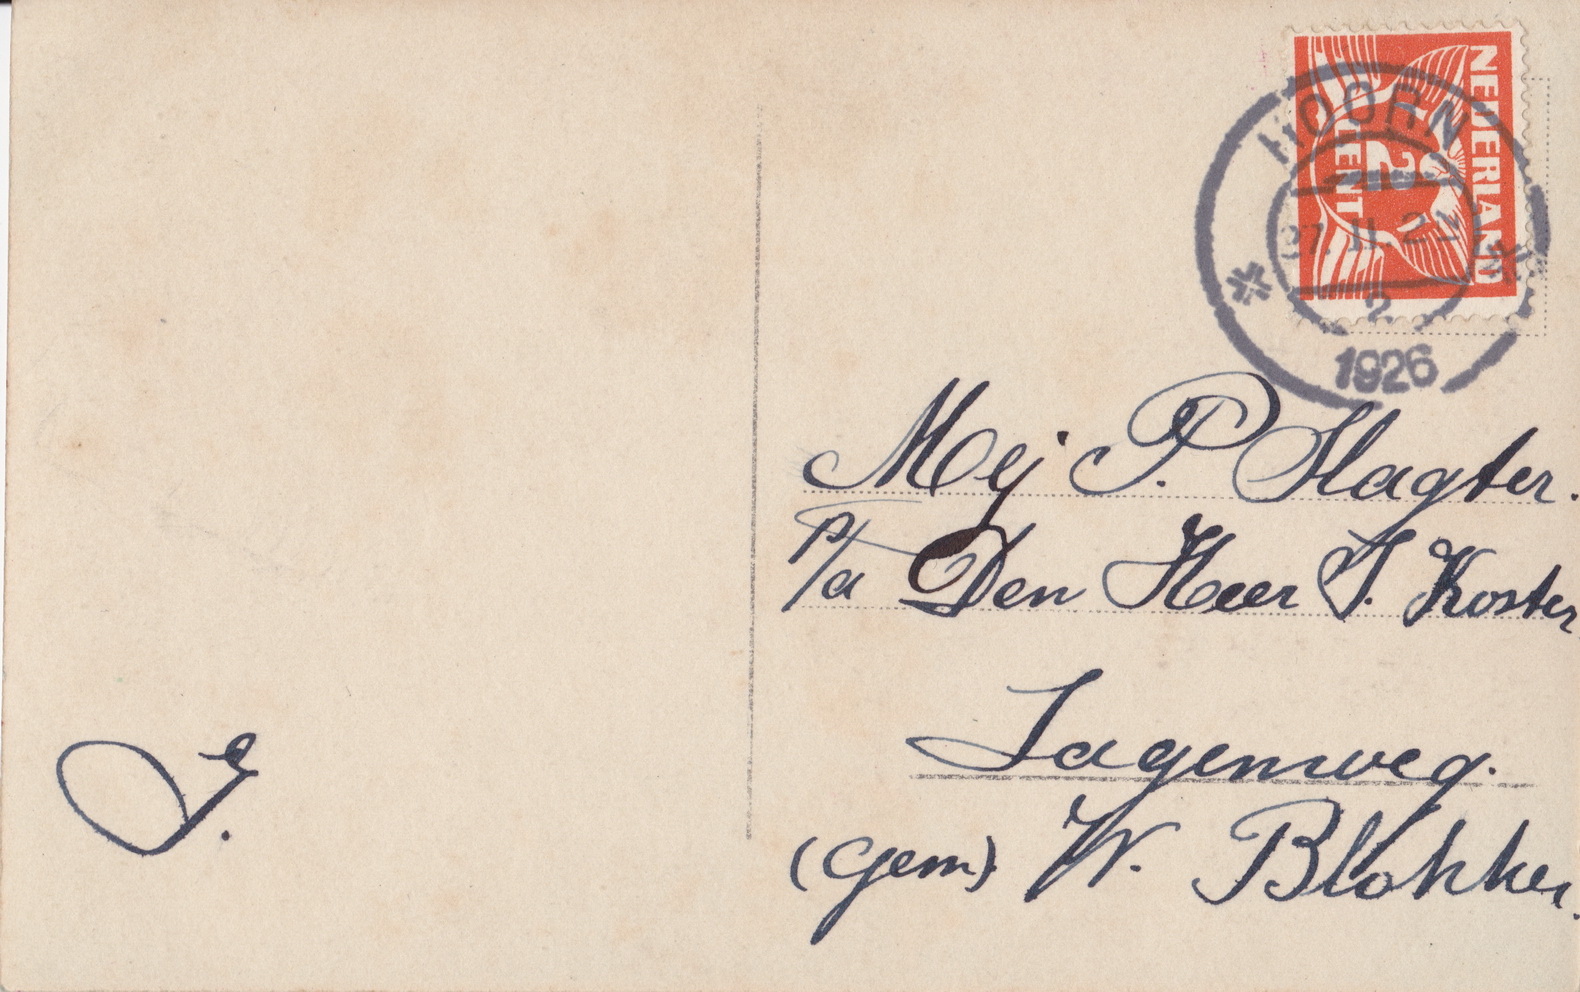 NEDERLAND
2
CENT
HOORN
2
1926
Mej P. Slagter.
p/a Den Heer J. Koster
Lagenweg.
(Gem) W. Blokker.
J.